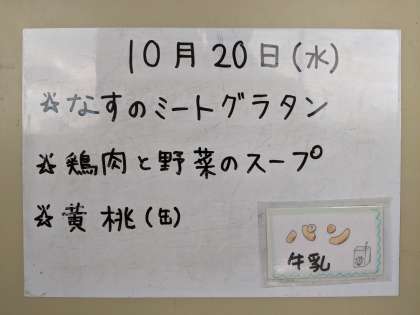 10月20日(水)
☆なすのミートグラタン
☆鶏肉と野菜のスープ
☆黄桃(缶)
パン
牛乳